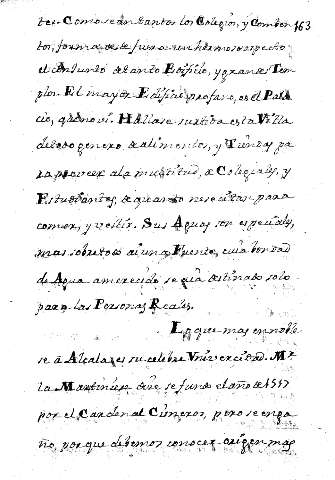 tes. Como son tantos los Colegios, y Conben 163
tos, forma desde fuera un hermoso aspecto
el conjunto de tanto Edificio, y grande Tem
plos. El mayor Edificio profano, es el Pala
cio, que no vi. Hállase surtida esta Villa
de todo genero de alimentos, y Tiendas pa
ra proveer a la multitud, de Colegiales, y
Estudiantes, de quanto necesitan para
comer, y vestir. Sus Aguas son especiales,
mas sobre todo ai una Fuente, cuia bondad
de Agua a merecido se quia destinado solo
para las Personas Reales.
Lo que mas ennoble
se á Alcala, es su celebre Vniversidad. Mr
la Martiniere dice se fundó el año de 1517
por el Cardenal Cisneros, pero se enga
ño, porque debemos conocer origen mas